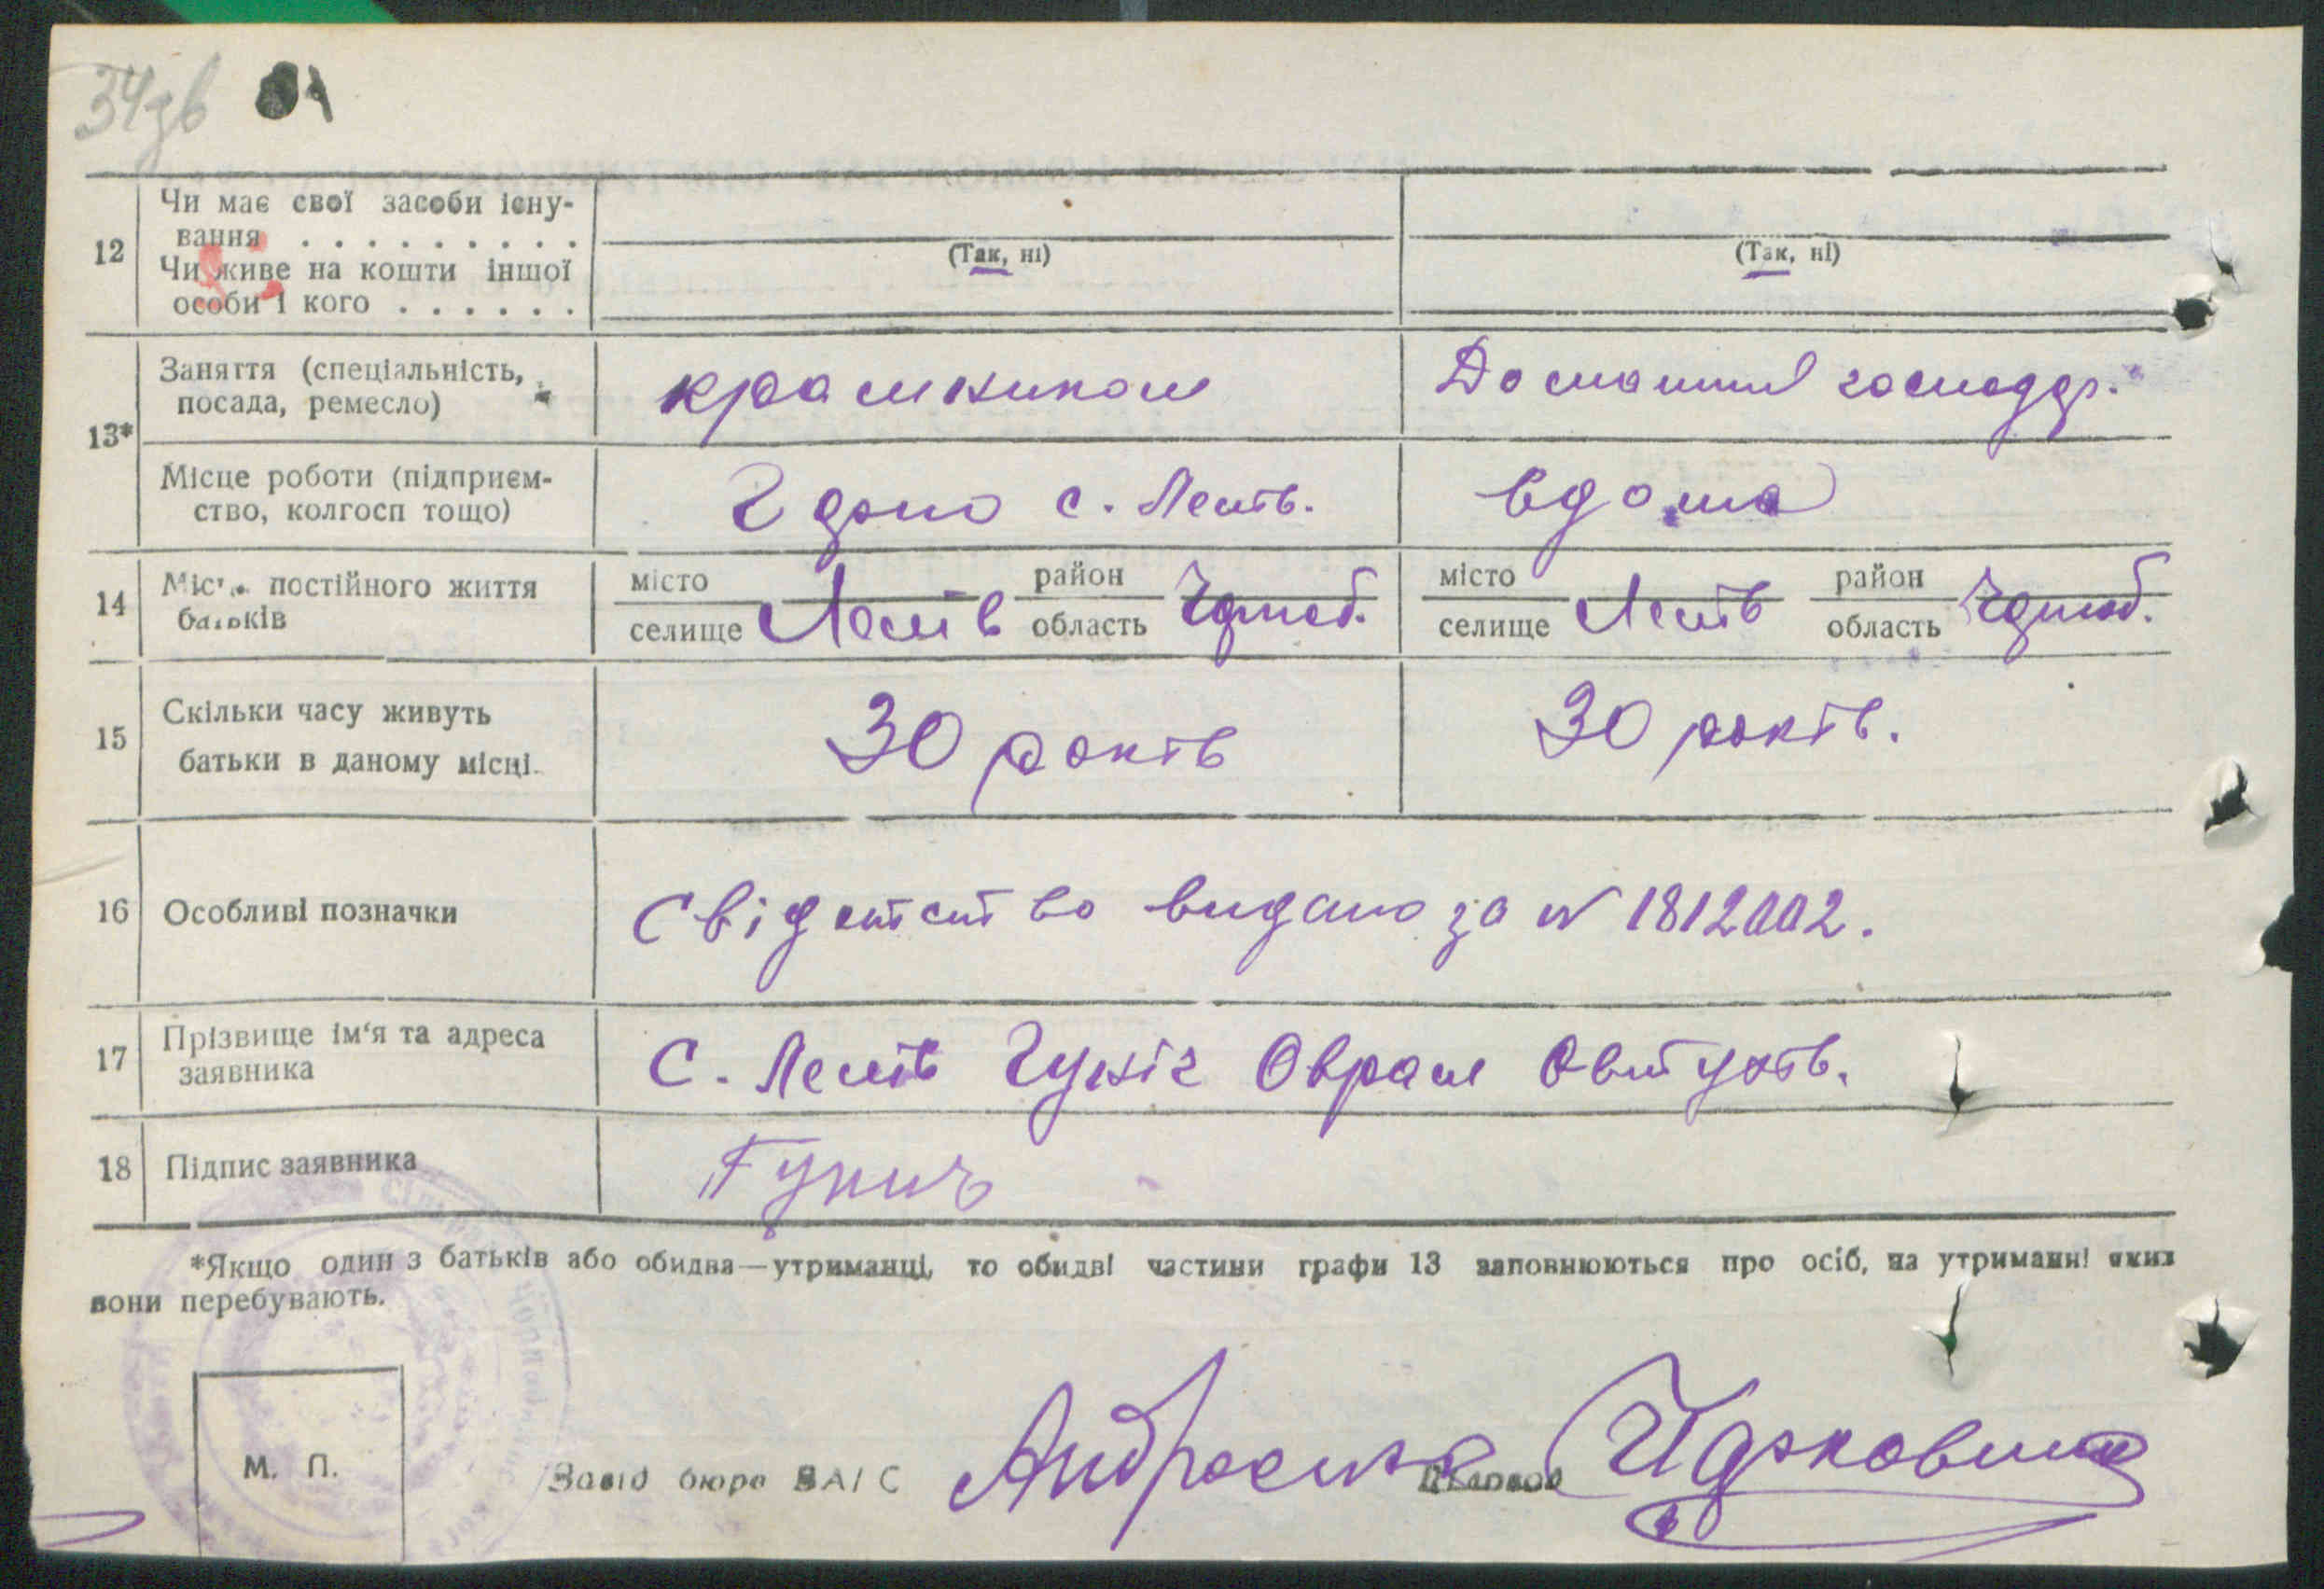 34зв
12 Чи має свої засоби існу-
вання . . . . . . . . .
(Так, ні) (Так, ні)
Чи живе на кошти іншої
особи і кого . . . . . .
13* Заняття (спеціальність, посада, ремесло) крамником Домашнє господар.
Місце роботи (підприєм-
ство, колгосп тощо) с. Лемів. вдома
14 постійного життя
батьків
місто район місто район
селище Лемів область селище Лемів область
15 Скільки часу живуть
батьки в даному місці 30 років 30 років.
16 Особливі позначки Свідотство видано за № 1812002.
17 Прізвище ім'я та адреса
заявника С. Лемів Гуніч Оврам
18 Підпис заявника Гунич
*Якщо один з батьків або обидва—утриманці, то обидві частини графи 13 заповнюються про осіб, на утриманні яких
вони перебувають.
М. П. Завід бюро ЗАГС